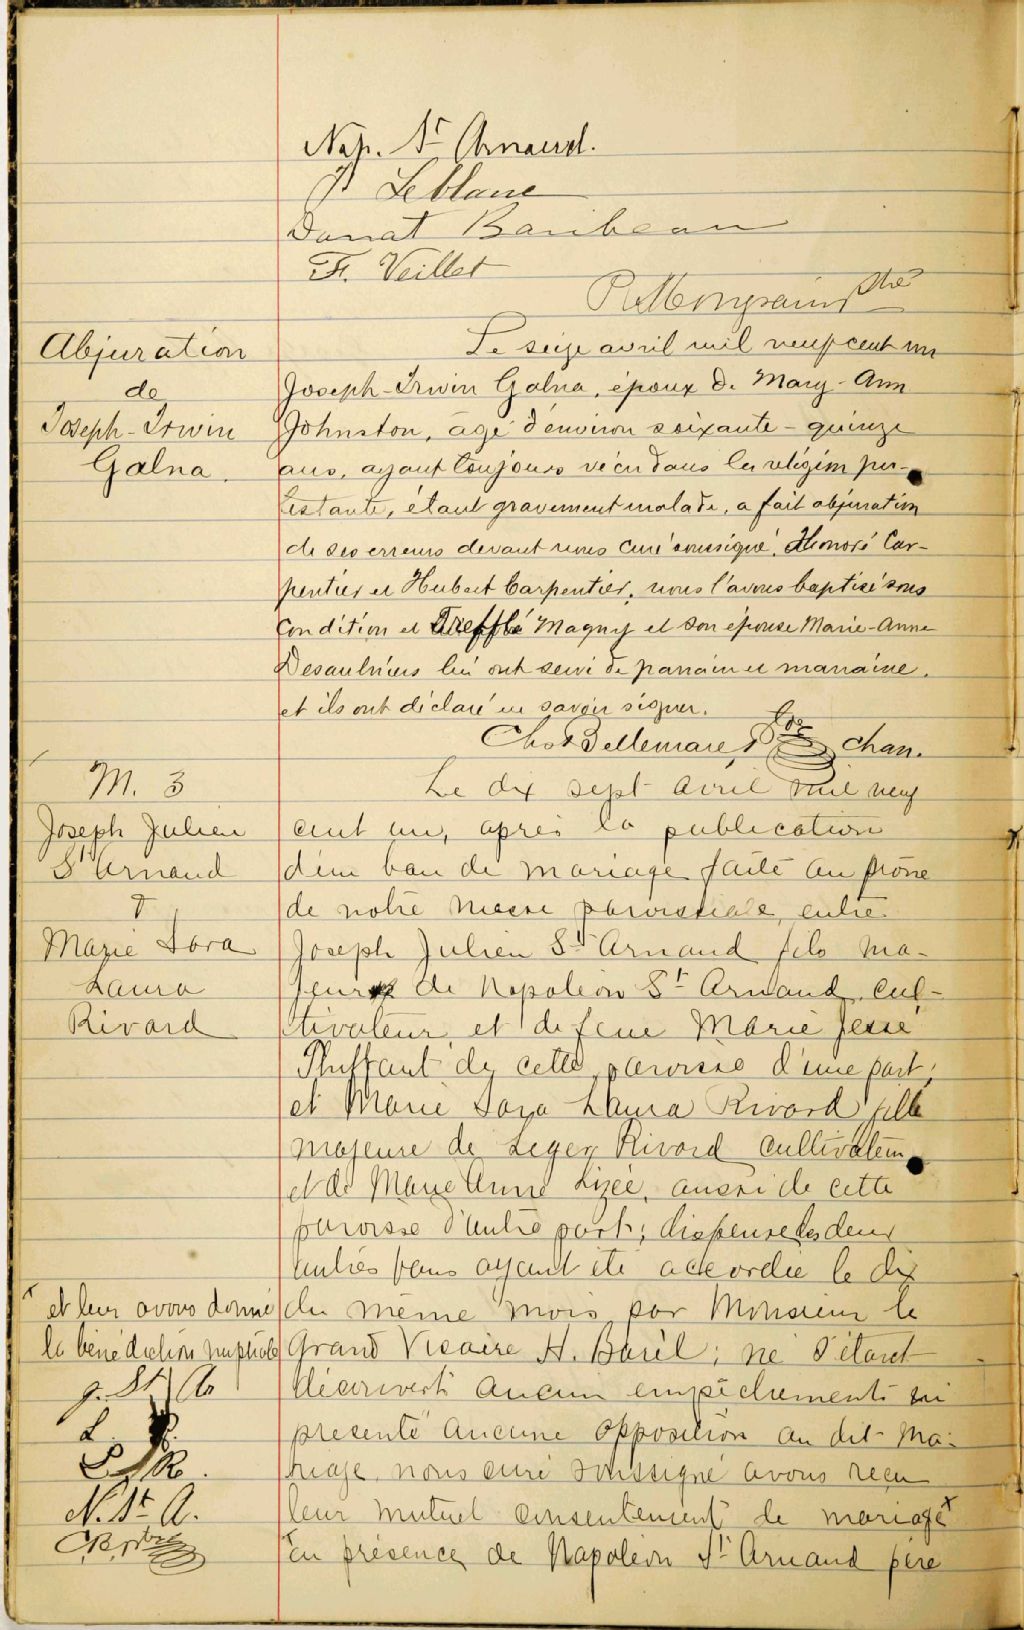 Nap. St Arnaud.
J Leblanc
Donat Baribeau
F. Veillet
R. Mongrain ptre
Abjuration
de
Joseph-Irwin
Galna.
Le seize avril mil neuf cent un
Joseph-Irwin Galna, époux de Mary-Ann
Johnston, agé d'environ soixante-quinze
ans, ayant toujours vécu dans la religion pro-
testante, étant gravement malade, a fait abjuration
de ses erreurs devant nous curé soussigné, Honoré Car-
pentier et Hubert Carpentier, nous l'avons baptisé sous
condition et Trefflé Magny et son épouse Marie-Anne
Desaulniers lui ont servi de parrain et marraine.
et ils ont déclaré ne savoir signer.
Chs Bellemare, Ptre chan.
M. 3
Joseph Julien
St Arnaud
&
Marie Sara
Laura
Rivard
Le dix sept avril mil neuf
cent un, après la publication
d'un ban de mariage faite au prône
de notre messe paroissiale, entre
Joseph Julien St Arnaud fils ma-
jeur de Napoléon St Arnaud, cul-
tivateur, et de feue Marie Jessé
Phiffaut de cette paroisse d'une part;
et Marie Sara Laura Rivard fille
majeure de Leger Rivard cultivateur
et de Marie Anne Lizée, aussi de cette
paroisse d'autre part; dispense des deux
autres bans ayant été accordée le dix
du même mois par Monsieur le
Grand Vicaire H. Baril; ne s'étant
découvert aucun empêchement ni
présenté aucune opposition au dit ma-
riage, nous curé soussigné avons reçu
leur mutuel consentement de mariage x
en présence de Napoléon St Arnaud père
x et leur avons donné
la bénédiction nuptiale
J. St Ar
L. R.
L. R.
N. St A.
C.B. ptre